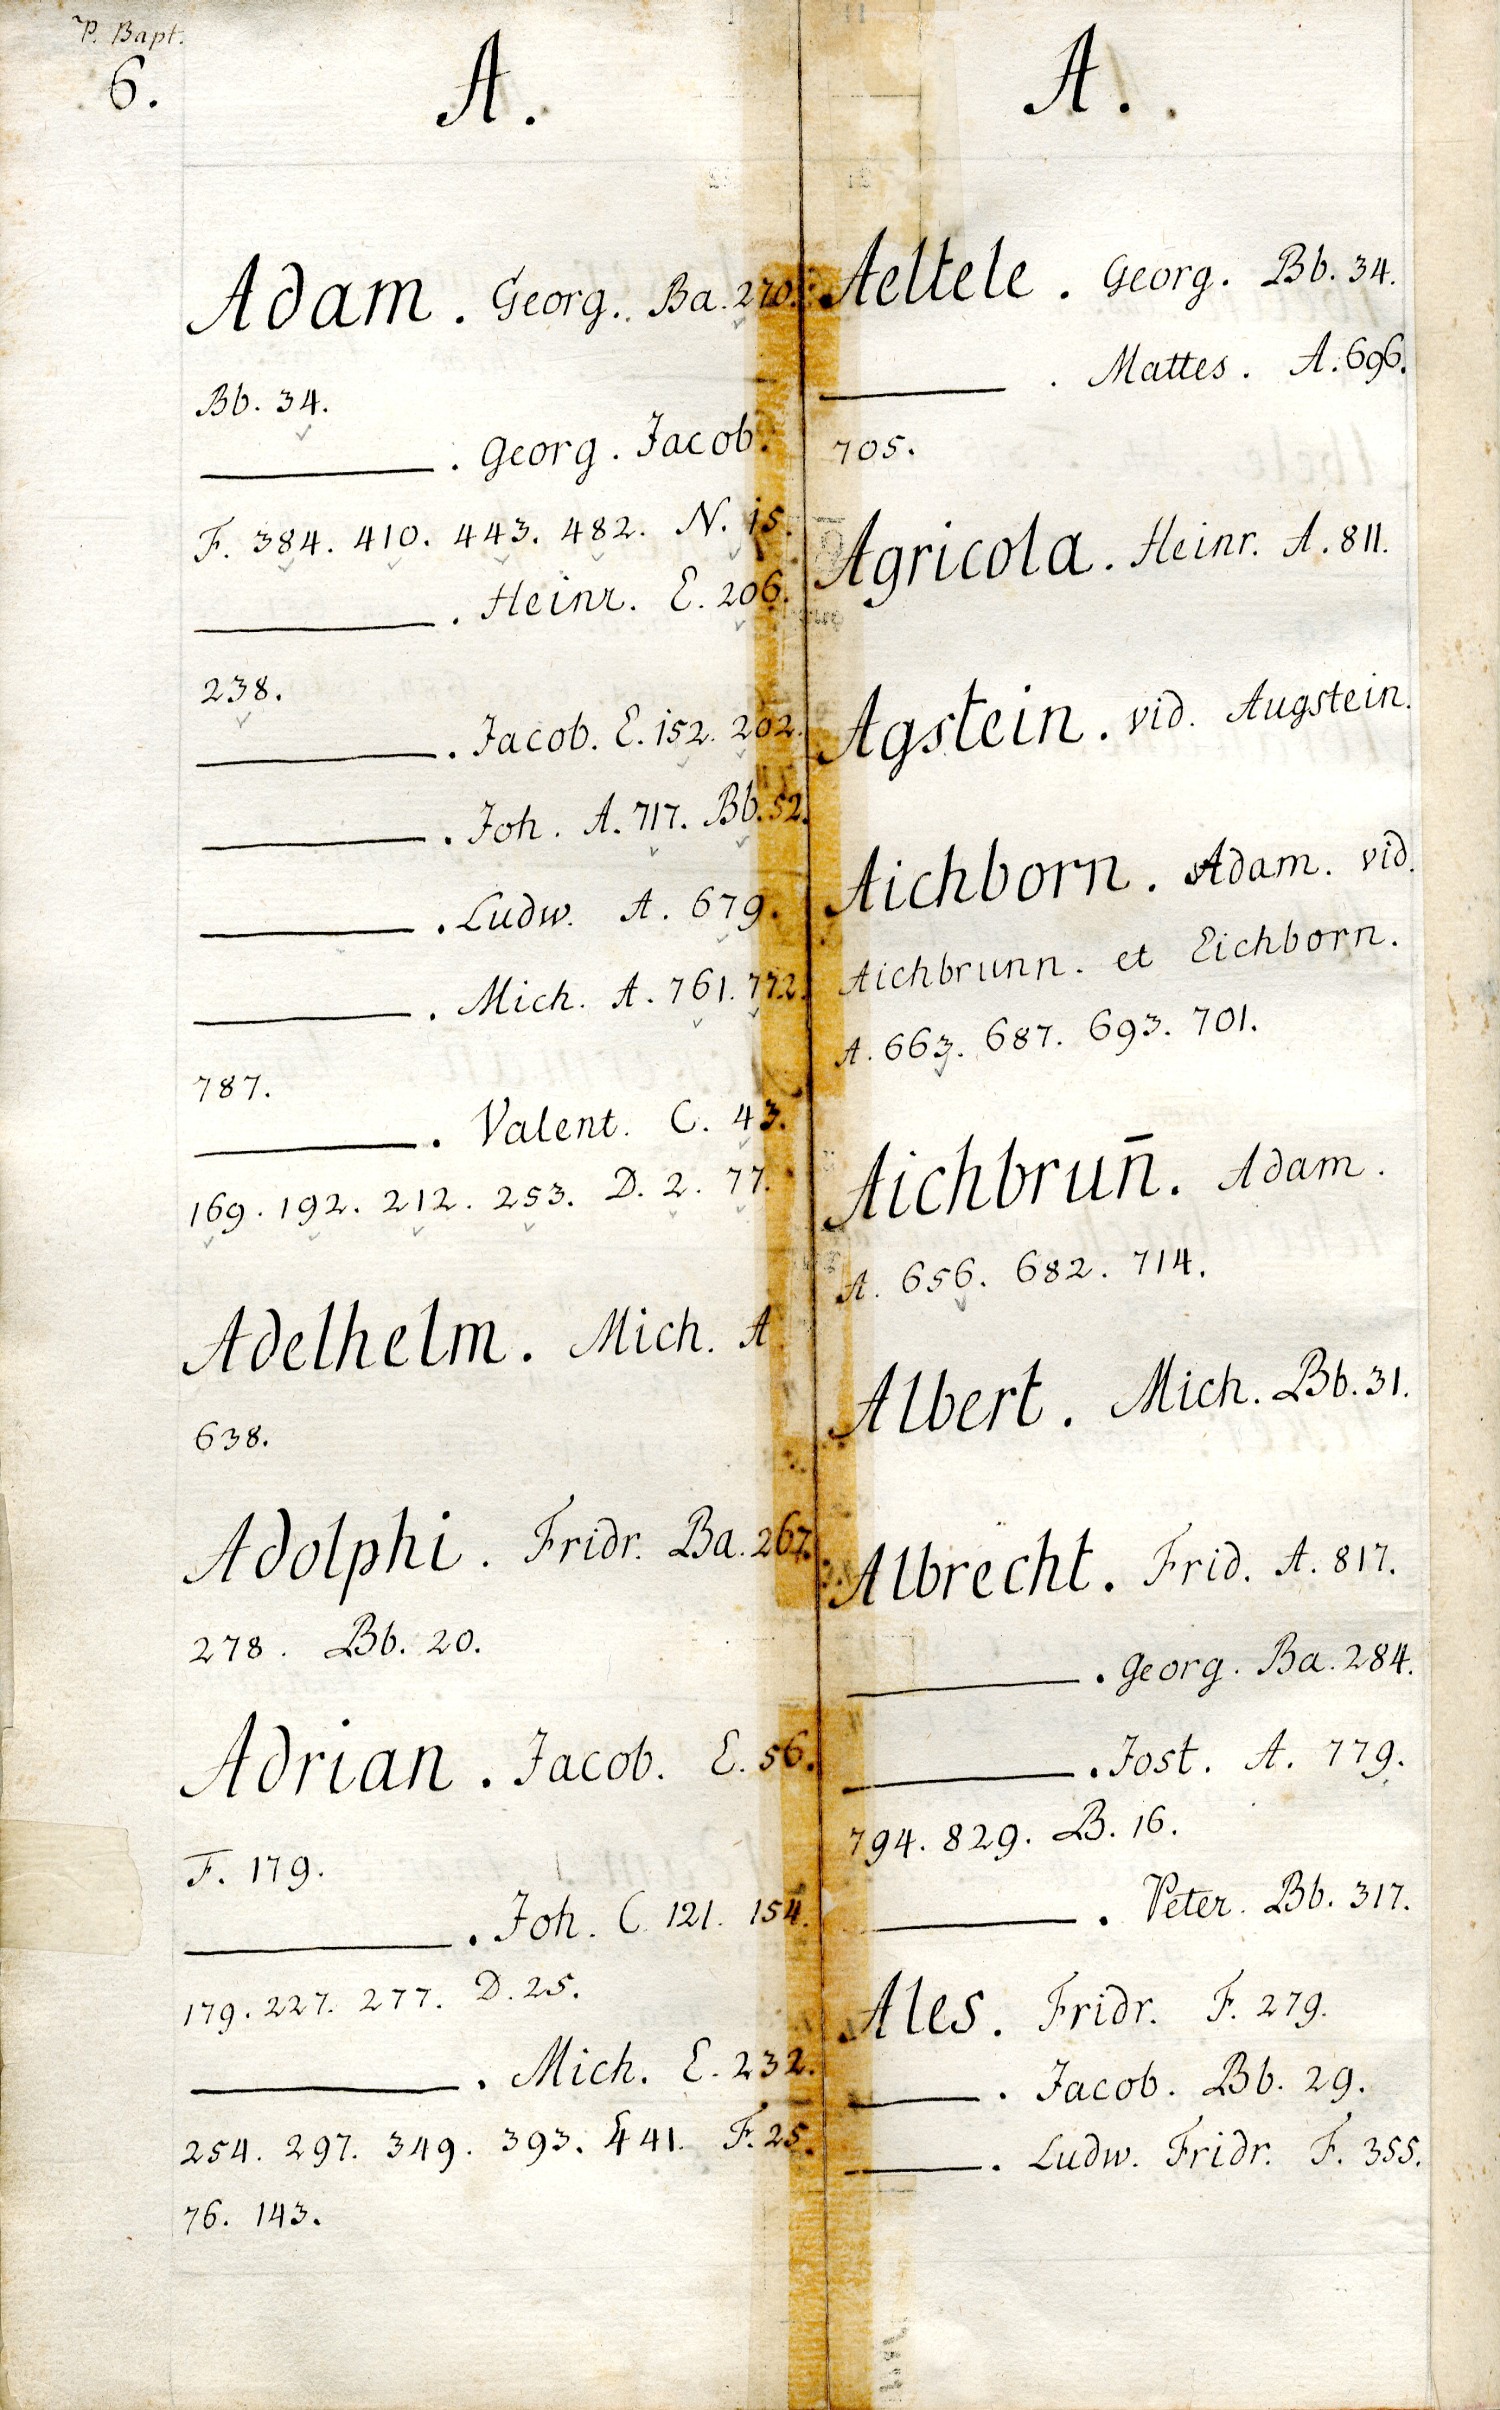 P. Bapt.
6.
A.
Adam. Georg. Ba. 270.
Bb. 34.
———. Georg. Jacob.
F. 384. 410. 443. 482. N. 15.
———. Heinr. E. 206.
238.
———. Jacob. E. 152. 202.
———. Joh. A. 717. Bb. 52.
———. Ludw. A. 679.
———. Mich. A. 761. 772.
787.
———. Valent. C. 43.
169. 192. 212. 253. D. 2. 77.
Adelhelm. Mich. A.
638.
Adolphi. Fridr. Ba. 267.
278. Bb. 20.
Adrian. Jacob. E. 56.
F. 179.
———. Joh. C. 121. 154.
179. 227. 277. D. 25.
———. Mich. E. 232.
254. 297. 349. 393. 441. F. 25.
76. 143.
A.
Aeltele. Georg. Bb. 34.
———. Mattes. A. 696.
705.
Agricola. Heinr. A. 811.
Agstein. vid. Augstein.
Aichborn. Adam. vid.
Aichbrunn. et Eichborn.
A. 663. 687. 693. 701.
Aichbrun̄. Adam.
A. 656. 682. 714.
Albert. Mich. Bb. 31.
Albrecht. Frid. A. 817.
———. Georg. Ba. 284.
———. Jost. A. 779.
794. 829. B. 16.
———. Peter. Bb. 317.
Ales. Fridr. F. 279.
———. Jacob. Bb. 29.
———. Ludw. Fridr. F. 355.